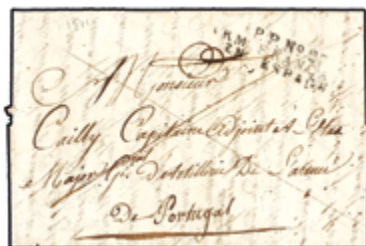 1811
P.P. No
ARM. FRANÇ
EN ESPAGN
Monsieur
Cailly Capitaine Adjoint à L'Etat
Major Gal d'Artillerie De L'armée
De Portugal